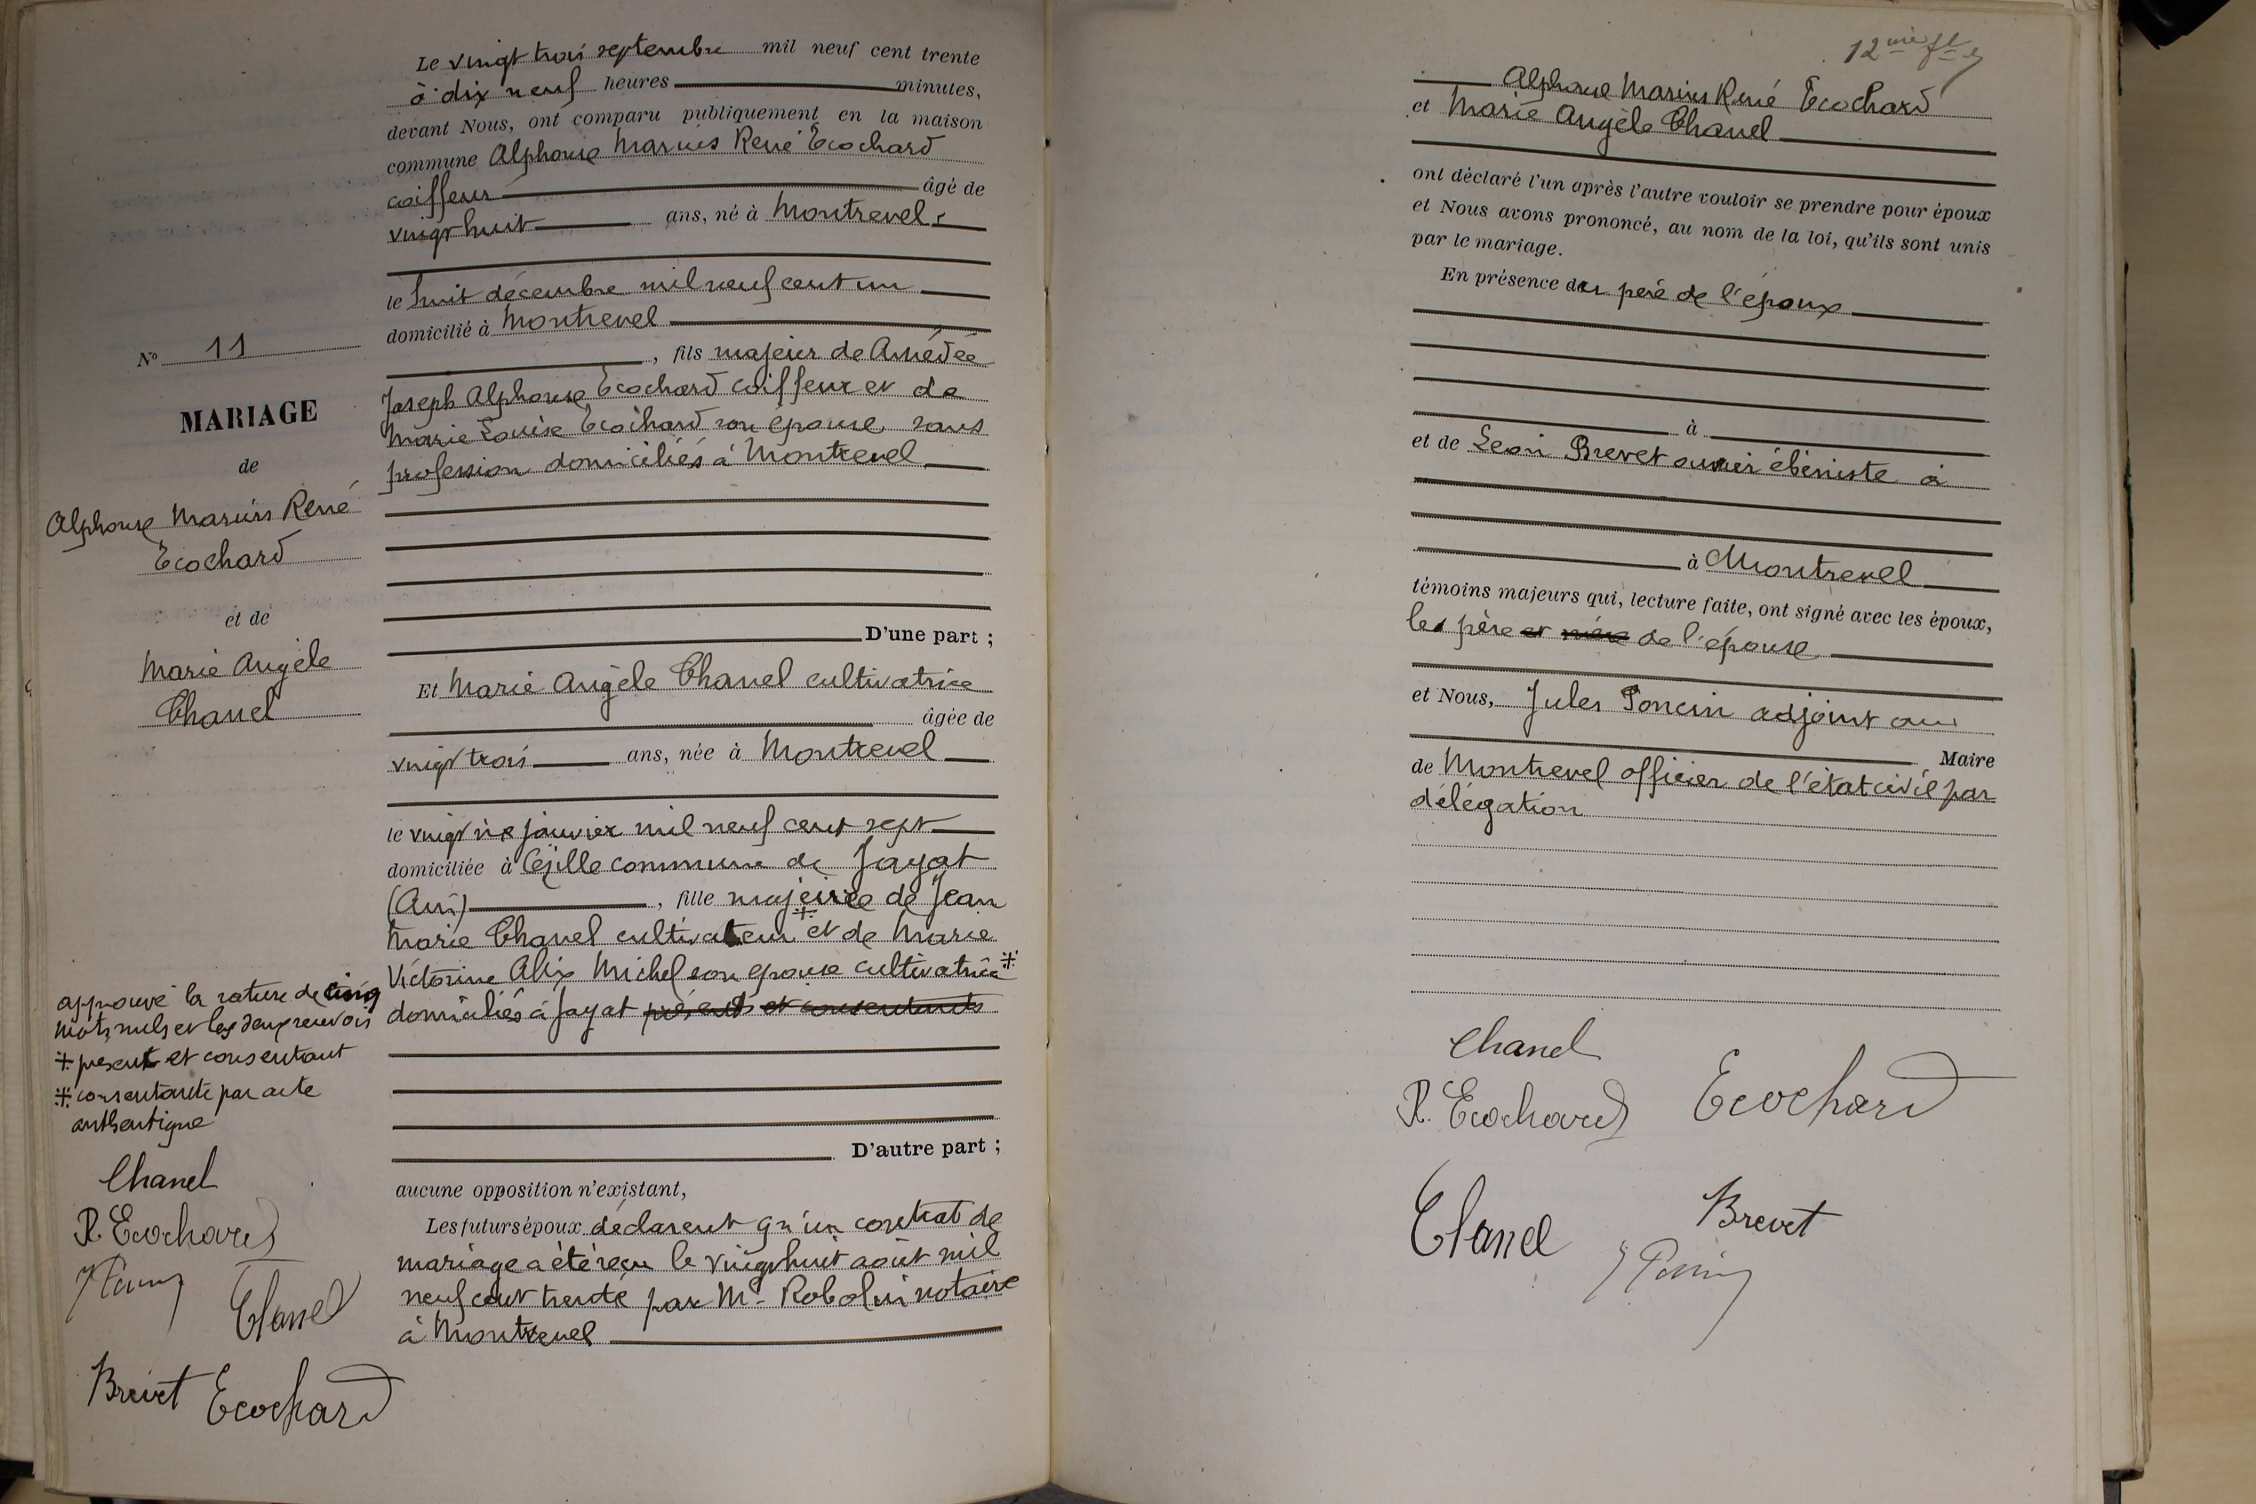 N° 11
MARIAGE
de
Alphonse Marius René
Ecochard
et de
Marie Angèle
Chanel
approuvé la rature de cinq
mots nuls et les deux renvois
⁜ présent et consentant
⁜ consentante par acte
authentique
Chanel
R. Ecochard
Chanel
Brevet Ecochard
Le vingt trois septembre mil neuf cent trente
à dix neuf heures minutes,
devant Nous, ont comparu publiquement en la maison
commune Alphonse Marius René Ecochard
coiffeur âgé de
vingt huit ans, né à Montrevel
le huit décembre mil neuf cent un
domicilié à Montrevel
, fils majeur de Amédée
Joseph Alphonse Ecochard coiffeur et de
Marie Louise Ecochard son épouse, sans
profession domiciliés à Montrevel
D'une part ;
Et Marie Angèle Chanel cultivatrice
âgée de
vingt trois ans, née à Montrevel
le vingt janvier mil neuf cent sept
domiciliée à Cézille commune de Jayat
(Ain) , fille majeure de Jean
Marie Chanel cultivateur ⁜ et de Marie
Victorine Alix Michel son épouse cultivatrice ⁜
domiciliés à Jayat présents et consentants
D'autre part ;
aucune opposition n'existant,
Les futurs époux déclarent qu'un contrat de
mariage a été reçu le vingt huit août mil
neuf cent trente par Me Robolin notaire
à Montrevel
12me ft
Alphonse Marius René Ecochard
et Marie Angèle Chanel
ont déclaré l'un après l'autre vouloir se prendre pour époux
et Nous avons prononcé, au nom de la loi, qu'ils sont unis
par le mariage.
En présence du père de l'époux
à
et de Léon Brevet ouvrier ébéniste à
à Montrevel
témoins majeurs qui, lecture faite, ont signé avec les époux,
le père et mère de l'épouse
et Nous, Jules Poncin adjoint au
Maire
de Montrevel officier de l'état civil par
délégation
Chanel
R. Ecochard Ecochard
Chanel Brevet
J Poncin